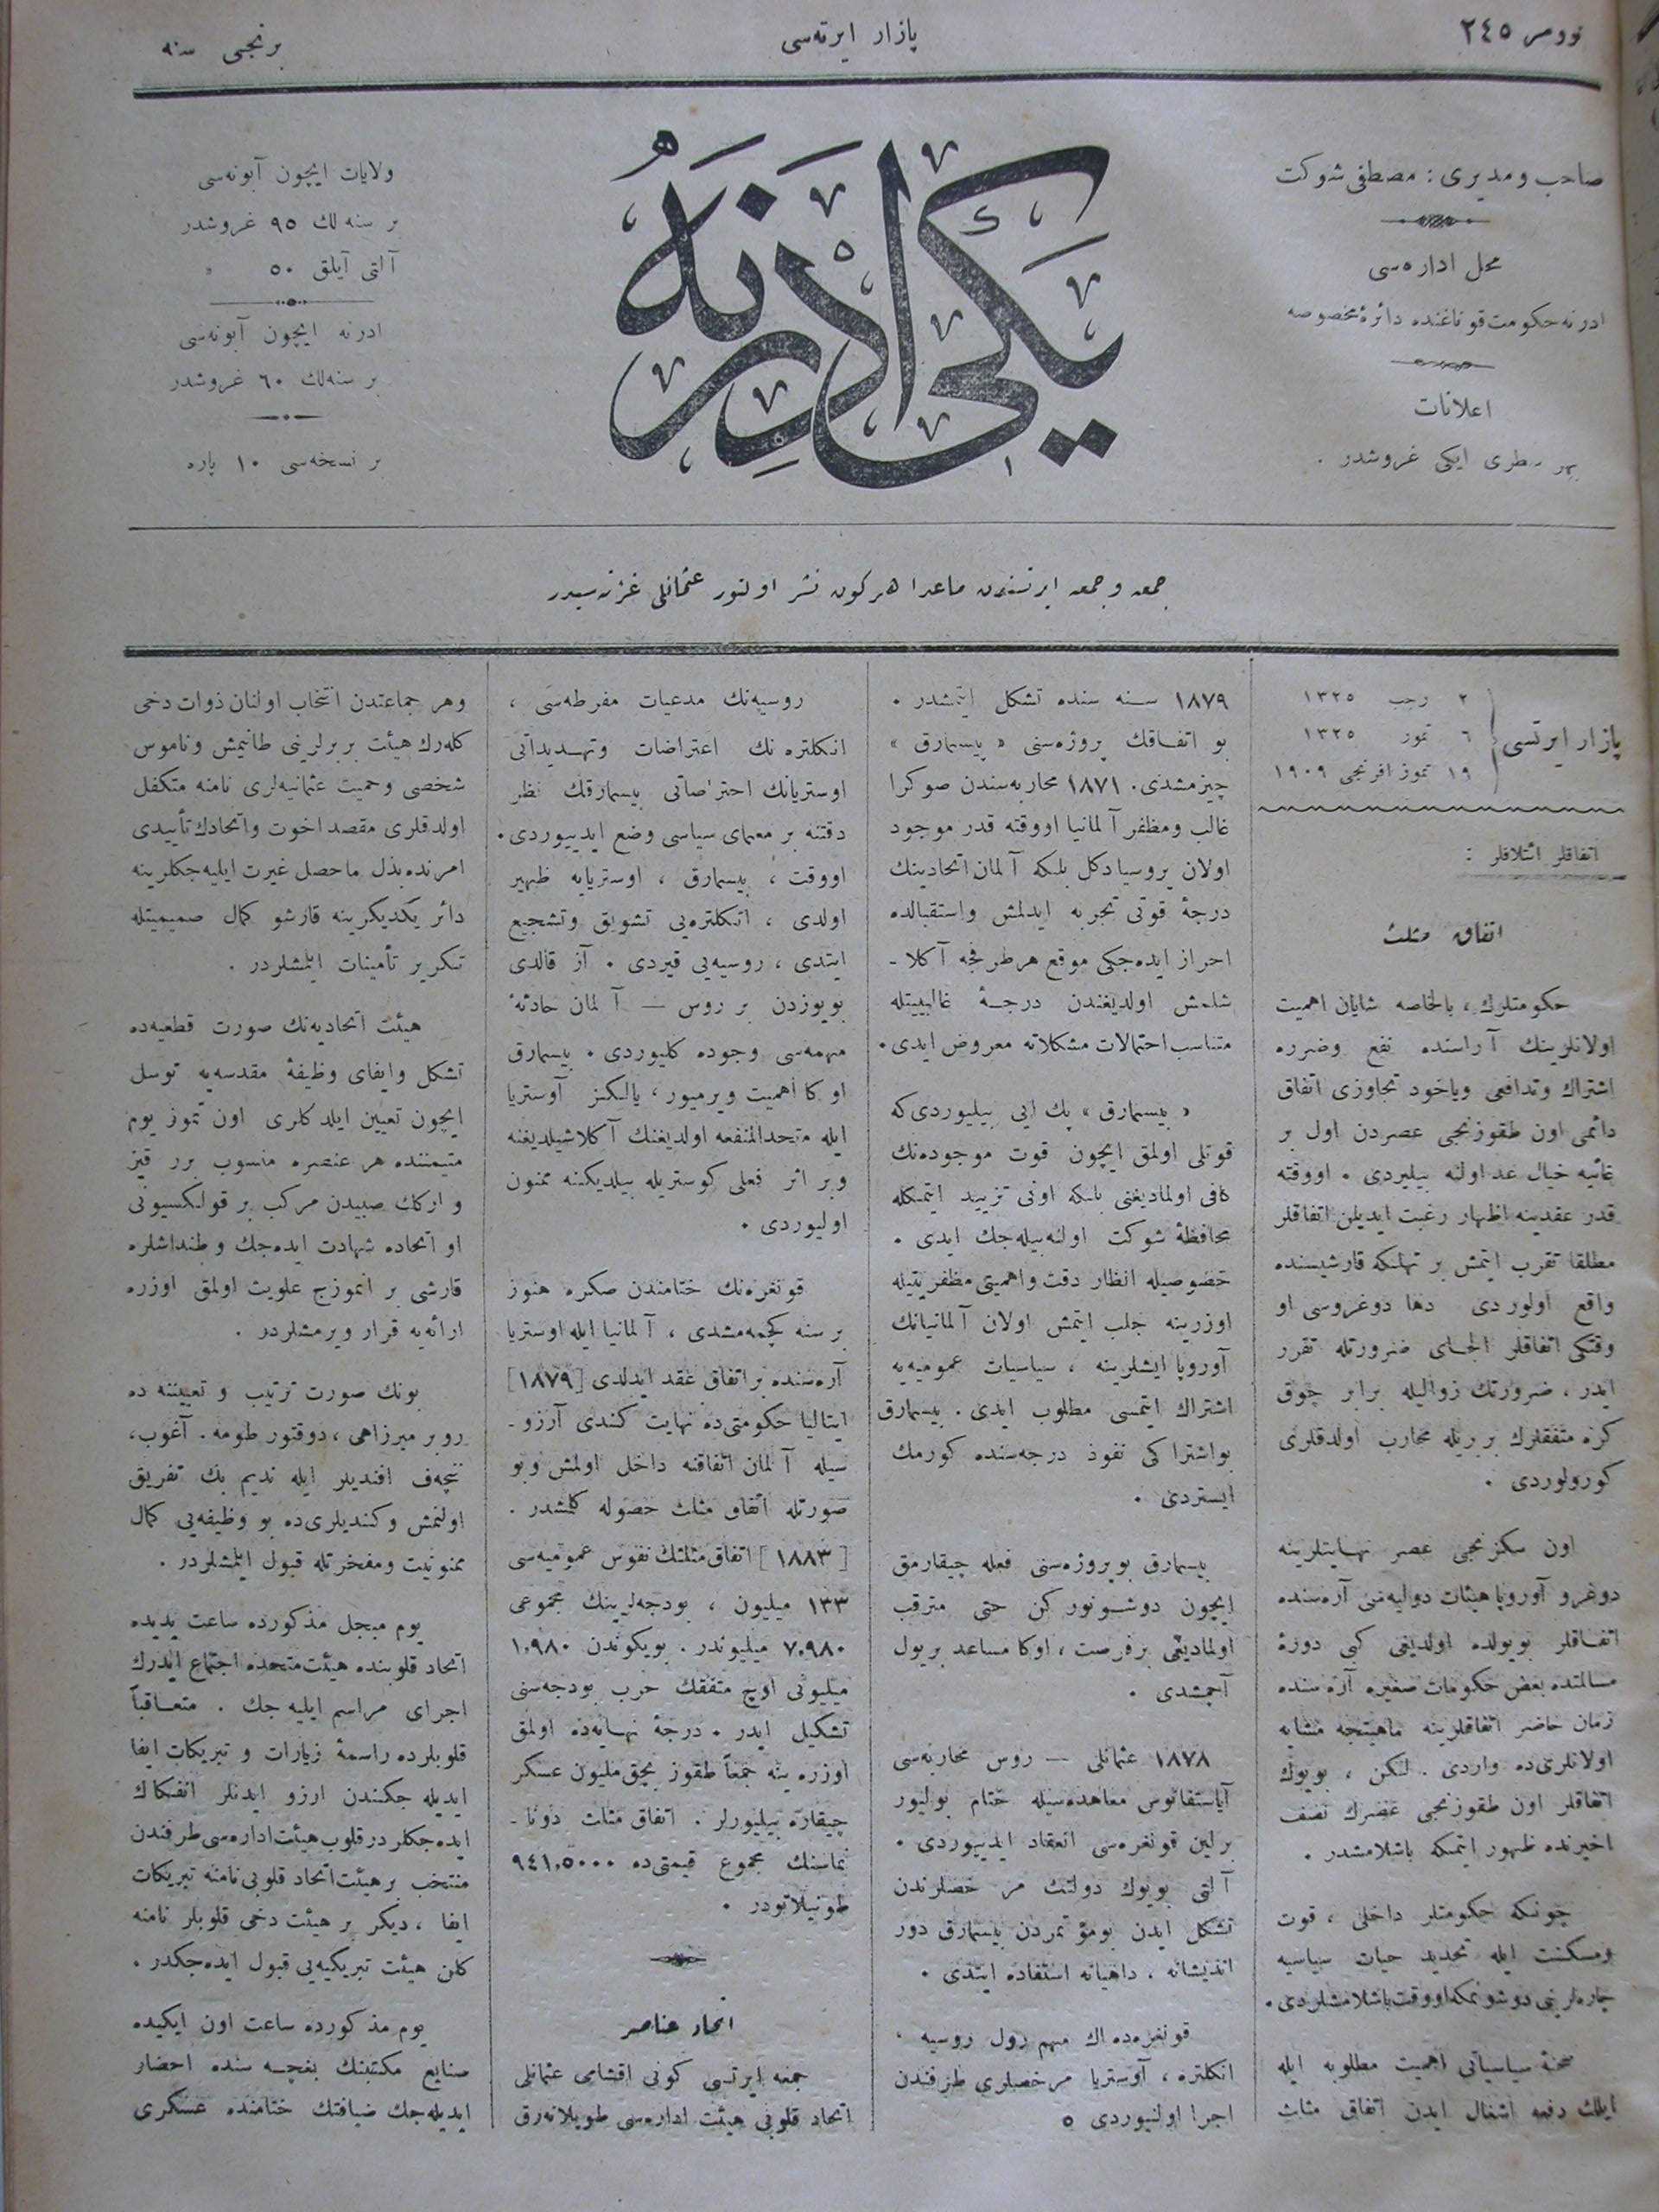 نومرو ٢٤٥
پازار ايرتەسی
برنجی سنه
صاحب و مديری : مصطفى شوكت
محل ادارەسی
ادرنه حكومت قوناغنده دائرۀ مخصوصه
اعلانات
بهر سطری ايكی غروشدر .
يكی ادرنه
ولايات ايچون آبونەسی
بر سنەلك ٩٥ غروشدر
آلتی آيلق ٥٠ »
ادرنه ايچون آبونەسی
بر سنەلك ٦٠ غروشدر
بر نسخەسی ١٠ پاره
جمعه و جمعه ايرتسندن ماعدا هركون نشر اولنور عثمانلی غزتەسيدر
پازار ايرتسی
٢ رجب ١٣٢٥
٦ تموز ١٣٢٥
١٩ تموز افرنجی ١٩٠٩
اتفاقلر ائتلافلر :
اتفاق مثلث
حكومتلرك ، بالخاصه شايان اهميت
اولانلرينك آراسنده نفع وضرره
اشتراك وتدافعی وياخود تجاوزی اتفاق
دائمی اون طقوزنجی عصردن اول بر
غائيه خيال عد اولنه بيليردی . اووقته
قدر عقدينه اظهار رغبت ايديلن اتفاقلر
مطلقا تقرب ايتمش بر تهلكه قارشيسنده
واقع اولوردی دها دوغروسی او
وقتكی اتفاقلر الجای ضرورتله تقرر
ايدر ، ضرورتك زواليله برابر چوق
كره متفقلرك بربريله محارب اولدقلری
كورولوردی .
اون سكزنجی عصر نهايتلرينه
دوغرو آوروپا هيئات دوليەسی آرەسنده
اتفاقلر بويولده اولديغی كبی دورۀ
مسالمتده بعض حكومات صغيره آرەسنده
زمان حاضر اتفاقلرينه ماهيتجه مشابه
اولانلری ده واردی . لكن ، بويوك
اتفاقلر اون طقوزنجی عصرك نصف
اخيرنده ظهور ايتمكه باشلامشدر .
چونكه حكومتلر داخلی ، قوت
ومسكنت ايله تحديد حيات سياسيه
چارەلرينی دوشونمكه اووقت باشلامشلردی .
صحنۀ سياسياتی اهميت مطلوبه ايله
ايلك دفعه اشغال ايدن اتفاق مثلث
١٨٧٩ سنه سنده تشكل ايتمشدر .
بو اتفاقك پروژەسنی « بيسمارق »
چيزمشدی . ١٨٧١ محاربەسندن صوكرا
غالب ومظفر آلمانيا اووقته قدر موجود
اولان پروسيا دكل بلكه آلمان اتحادينك
درجۀ قوتی تجربه ايدلمش واستقبالده
احراز ايدەجكی موقع هر طرفجه آكلا ـ
شلمش اولديغندن درجۀ غالبيتيله
متناسب احتمالات مشكلاته معروض ايدی .
« بيسمارق » پك ايی بيليوردی كه
قوتلی اولمق ايچون قوت موجودەنك
كافی اولماديغنی بلكه اونی تزييد ايتمكله
محافظۀ شوكت اولنه بيلەجك ايدی .
خصوصيله انظار دقت واهميتی مظفريتيله
اوزرينه جلب ايتمش اولان آلمانيانك
آوروپا ايشلرينه ، سياسيات عموميەيه
اشتراك ايتمسی مطلوب ايدی . بيسمارق
بو اشتراكی نفوذ درجەسنده كورمك
ايستردی .
بيسمارق بو پروژەسنی فعله چيقارمق
ايچون دوشونوركن حتی مترقب
اولماديغی بر فرصت ، اوكا مساعد بر يول
آچمشدی .
١٨٧٨ عثمانلی — روس محاربەسی
آياستفانوس معاهدەسيله ختام بوليور
برلين قونغرەسی انعقاد ايدييوردی .
آلتی بويوك دولتك مرخصلرندن
تشكل ايدن بو مؤتمردن بيسمارق دور
انديشانه ، داهيانه استفاده ايتدی .
قونغرەده اك مهم رول روسيه ،
انكلتره ، آوستريا مرخصلری طرفندن
اجرا اولنيوردی
روسيەنك مدعيات مفرطەسی ،
انكلترەنك اعتراضات وتهديداتی
اوستريانك احتراصاتی بيسمارقك نظر
دقتنه بر معمای سياسی وضع ايدييوردی .
اووقت ، بيسمارق ، اوسترياِيه ظهير
اولدی ، انكلترەيی تشويق وتشجيع
ايتدی ، روسيەيی قيردی . آز قالدی
بويوزدن بر روس — آلمان حادثۀ
مهمەسی وجوده كليوردی . بيسمارق
اوكا اهميت ويرميور ، يالكز آوستريا
ايله متحد المنفعه اولديغنك آكلاشيلديغنه
وبر اثر فعلی كوستريله بيلديكنه ممنون
اوليوردی .
قونغرەنك ختامندن صكره هنوز
بر سنه كچمەمشدی ، آلمانيا ايله اوستريا
آرەسنده بر اتفاق عقد ايدلدی [ ١٨٧٩ ]
ايتاليا حكومتی ده نهايت كندی آرزو ـ
سيله آلمان اتفاقنه داخل اولمش وبو
صورتله اتفاق مثلث حصوله كلمشدر .
[ ١٨٨٣ ] اتفاق مثلثك نفوس عموميەسی
١٣٣ ميليون ، بودجەلرينك مجموعی
٧,٩٨٠ ميليوندر . بويكوندن ١,٩٨٠
ميليونی اوچ متفقك حرب بودجەسنی
تشكيل ايدر . درجۀ نهايەده اولمق
اوزره ينه جمعاً طقوز بچق مليون عسكر
چيقاره بيليورلر . اتفاق مثلث دونا ـ
نماسنك مجموع قيمتی ده ٩٤١,٥٠٠٠
طونيلاتودر .
اتحاد عناصر
جمعه ايرتسی كونی اقشامی عثمانلی
اتحاد قلوبی هيئت ادارەسی طوپلانەرق
وهر جماعتدن انتخاب اولنان ذوات دخی
كلەرك هيئت بربرلرينی طانيمش وناموس
شخصی وحميت عثمانيەلری نامنه متكفل
اولدقلری مقصد اخوت واتحادك تأييدی
امرنده بذل ماحصل غيرت ايليەجكلرينه
دائر يكديگرينه قارشو كمال صميميتله
تكرير تأمينات ايلمشلردر .
هيئت اتحاديەنك صورت قطعيەده
تشكل وايفای وظيفۀ مقدسەيه توسل
ايچون تعيين ايلدكلری اون تموز يوم
متيمننده هر عنصره منسوب برر قيز
و اركك صبيدن مركب بر قولكسيونی
او اتحاده شهادت ايدەجك وطنداشلره
قارشی بر انموزج علويت اولمق اوزره
ارائەيه قرار ويرمشلردر .
بونك صورت ترتيب و تعييننه ده
روبر ميرزاهی ، دوقتور طومه . آغوب ،
افنديلر ايله نديم بك تفريق
اولنمش وكنديلری ده بو وظيفەيی كمال
ممنونيت ومفخرتله قبول ايلمشلردر .
يوم مبجل مذكورده ساعت يديده
اتحاد قلوبنده هيئت متحده اجتماع ايدرك
اجرای مراسم ايليەجك . متعاقباً
قلوبلرده راسمۀ زيارات و تبريكات ايفا
ايديلەجكندن ارزو ايدنلر انفكاك
ايدەجكلردر قلوب هيئت ادارەسی طرفندن
منتخب بر هيئت اتحاد قلوبی نامنه تبريكات
ايفا ، ديكر بر هيئت دخی قلوبلر نامنه
كلن هيئت تبريكيەيی قبول ايدەجكدر .
يوم مذكورده ساعت اون ايكيده
صنايع مكتبنك بغچەسنده احضار
ايديلەجك ضيافتك ختامنده عسكری